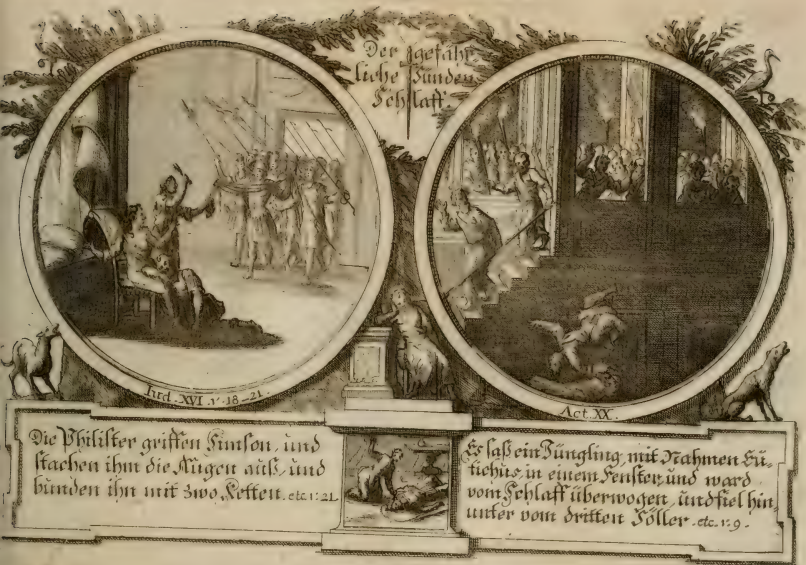 Der gefähr-
liche Sünden
Schlaff.
Iud. XVI. v. 18-21.
Act XX.
Die Philister griffen Simson, und
stachen ihm die Augen auß, und
bunden ihn mit zwo Ketten. etc. v. 21
Es saß ein Jüngling, mit Nahmen Eu-
tichus, in einem Fenster, und ward
vom Schlaff überwogen, und fiel hin-
unter vom dritten Söller. etc. v. 9.